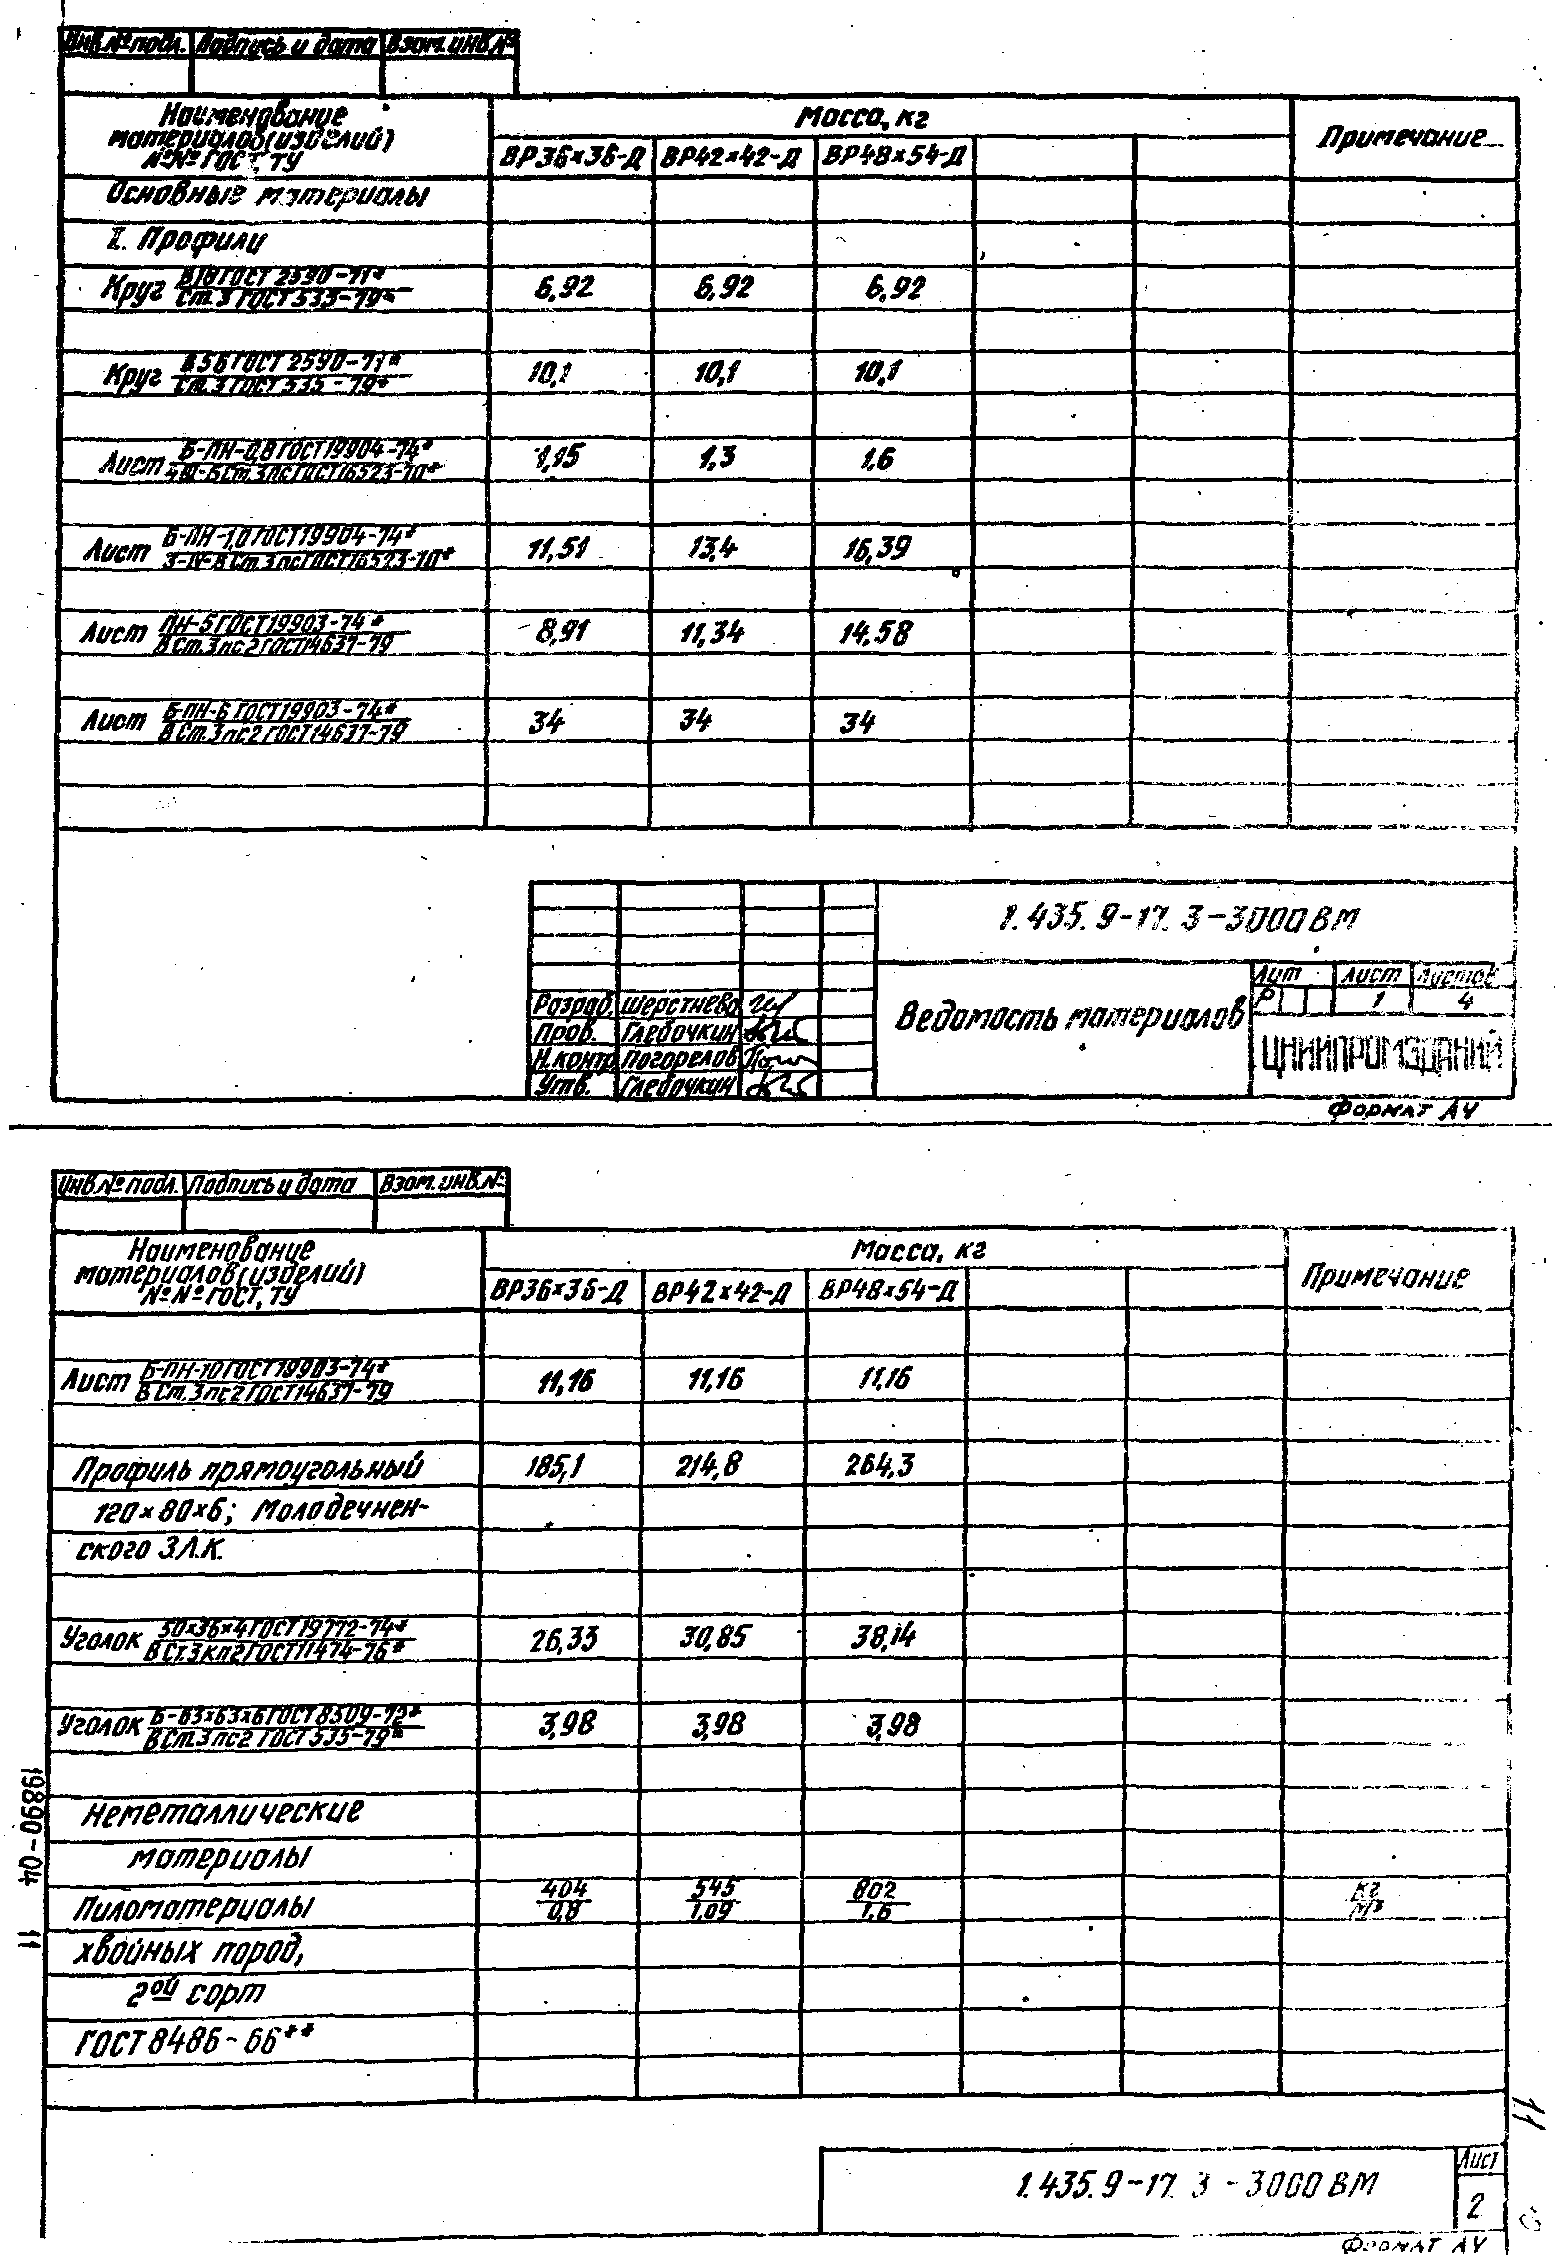 Инв.№ подл. Подпись и дата Взам.инв.№
Наименование Масса, кг Примечание
материалов (изделий)
№№ ГОСТ, ТУ ВР36×36-Д ВР42×42-Д ВР48×54-Д
Основные материалы
I. Профили
Круг В18 ГОСТ 2590-71* 6,92 6,92 6,92
Ст.3 ГОСТ 535-79*
Круг В56 ГОСТ 2590-71* 10,1 10,1 10,1
Ст.3 ГОСТ 535-79*
Лист Б-ПН-0,8 ГОСТ 19904-74* 1,15 1,3 1,6
4-III-Б Ст.3пс ГОСТ 16523-70*
Лист Б-ПН-1,0 ГОСТ 19904-74* 11,51 13,4 16,39
3-IV-В Ст.3пс ГОСТ 16523-70*
Лист ПН-5 ГОСТ 19903-74* 8,91 11,34 14,58
В Ст.3пс2 ГОСТ 14637-79
Лист Б-ПН-6 ГОСТ 19903-74* 34 34 34
В Ст.3пс2 ГОСТ 14637-79
1.435.9-17.3-3000ВМ
Разраб. Шерстнева
Пров. Глебочкин
Н.контр Погорелов
Утв. Глебочкин
Ведомость материалов
Лит Лист Листов
Р 1 4
ЦНИИПРОМЗДАНИЙ
Формат А4
Инв.№ подл. Подпись и дата Взам.инв.№
Наименование Масса, кг Примечание
материалов (изделий)
№№ ГОСТ, ТУ ВР36×36-Д ВР42×42-Д ВР48×54-Д
Лист Б-ПН-10 ГОСТ 19903-74* 11,16 11,16 11,16
В Ст.3пс2 ГОСТ 14637-79
Профиль прямоугольный 185,1 214,8 264,3
120×80×6; Молодечнен-
ского З.Л.К.
Уголок 50×36×4 ГОСТ 19772-74* 26,33 30,85 38,14
В Ст.3кп2 ГОСТ 11474-76*
Уголок Б-63×63×6 ГОСТ 8509-72* 3,98 3,98 3,98
В Ст.3пс2 ГОСТ 535-79*
Неметаллические
материалы
Пиломатериалы 404/0,8 545/1,09 802/1,6 кг/м³
хвойных пород,
2ой сорт
ГОСТ 8486-66**
19890-04 11
11
1.435.9-17.3-3000ВМ
Лист
2
Формат А4